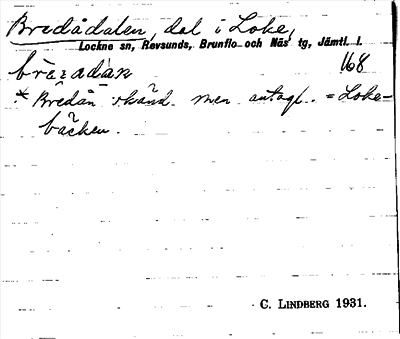 Bredådalen, dal i Loke,
Lockne sn, Revsunds, Brunflo och Näs tg, Jämtl. l.
168
* Bredån okänd men antagl. = Loke-
bäcken.
C. LINDBERG 1931.